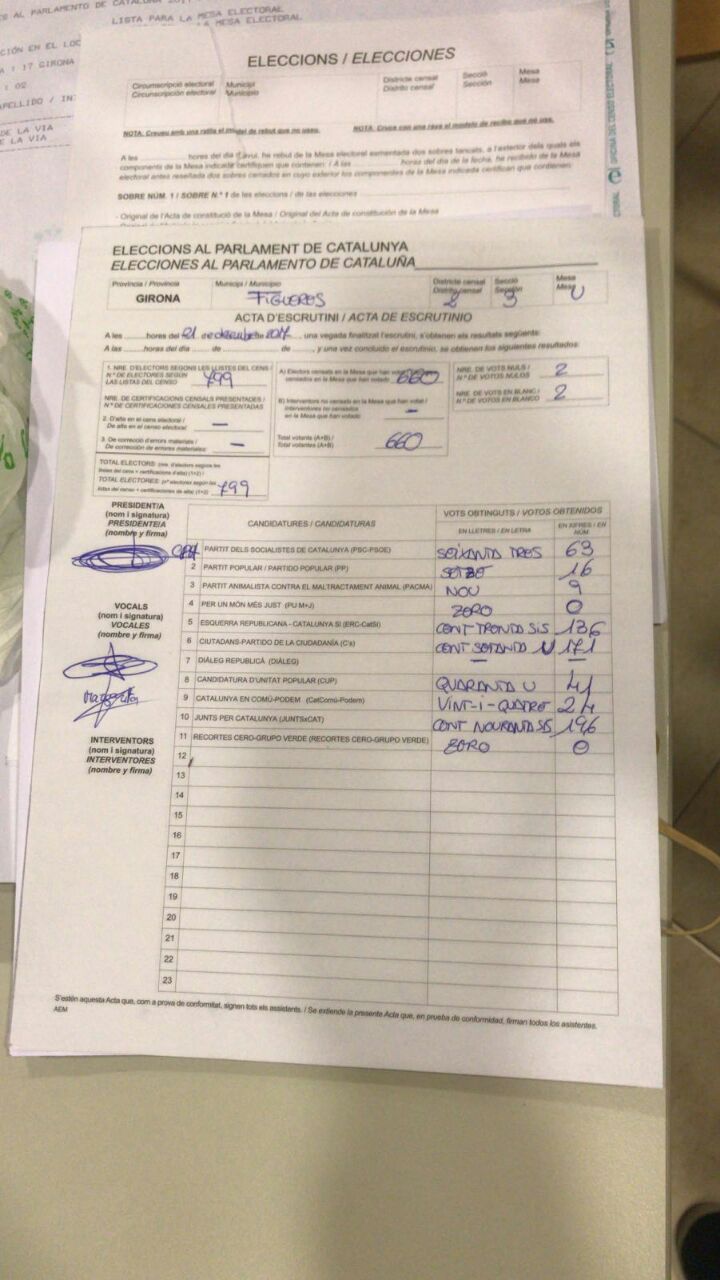 LISTA PARA LA MESA ELECTORAL
ELECCIONS / ELECCIONES
Circumscripció electoral
Circunscripción electoral
Municipi
Municipio
Districte censal
Distrito censal
Secció
Sección
Mesa
Mesa
NOTA. Creueu amb una ratlla el model de rebut que no useu.
NOTA. Cruce con una raya el modelo de recibo que no use.
A les hores del dia d'avui, he rebut de la Mesa electoral esmentada dos sobres tancats, a l'exterior dels quals els
components de la Mesa indicada certifiquen que contenen: / A las horas del día de la fecha, he recibido de la Mesa
electoral antes reseñada dos sobres cerrados en cuyo exterior los componentes de la Mesa indicada certifican que contienen:
SOBRE NÚM. 1 / SOBRE N.º 1 de les eleccions / de las elecciones
- Original de l'Acta de constitució de la Mesa / Original del Acta de constitución de la Mesa
OFICINA DEL CENSO ELECTORAL
ELECCIONS AL PARLAMENT DE CATALUNYA
ELECCIONES AL PARLAMENTO DE CATALUÑA
Província / Provincia
GIRONA
Municipi / Municipio
FIGUERES
Districte censal
Distrito censal
2
Secció
Sección
3
Mesa
Mesa
U
ACTA D'ESCRUTINI / ACTA DE ESCRUTINIO
A les hores del 21 de desembre de 2017, una vegada finalitzat l'escrutini, s'obtenen els resultats següents:
A las horas del día de de , y una vez concluido el escrutinio, se obtienen los siguientes resultados:
1. NRE. D'ELECTORS SEGONS LES LLISTES DEL CENS /
N.º DE ELECTORES SEGÚN
LAS LISTAS DEL CENSO
799
A) Electors censats en la Mesa que han votat /
censados en la Mesa que han votado
660
NRE. DE VOTS NULS /
N.º DE VOTOS NULOS
2
NRE. DE CERTIFICACIONS CENSALS PRESENTADES /
N.º DE CERTIFICACIONES CENSALES PRESENTADAS
B) Interventors no censats en la Mesa que han votat /
Interventores no censados
en la Mesa que han votado
–
NRE. DE VOTS EN BLANC /
N.º DE VOTOS EN BLANCO
2
2. D'alta en el cens electoral /
De alta en el censo electoral
–
3. De correcció d'errors materials /
De corrección de errores materiales:
–
Total votants (A+B) /
Total votantes (A+B)
660
TOTAL ELECTORS: (nre. d'electors segons les
llistes del cens + certificacions d'alta) (1+2) /
TOTAL ELECTORES: (nº electores según las
listas del censo + certificaciones de alta) (1+2)
799
PRESIDENT/A
(nom i signatura)
PRESIDENTE/A
(nombre y firma)
VOCALS
(nom i signatura)
VOCALES
(nombre y firma)
Margarita
INTERVENTORS
(nom i signatura)
INTERVENTORES
(nombre y firma)
CANDIDATURES / CANDIDATURAS
VOTS OBTINGUTS / VOTOS OBTENIDOS
EN LLETRES / EN LETRA
EN XIFRES / EN NÚM.
1 PARTIT DELS SOCIALISTES DE CATALUNYA (PSC-PSOE) SEIXANTA TRES 63
2 PARTIT POPULAR / PARTIDO POPULAR (PP) SETZE 16
3 PARTIT ANIMALISTA CONTRA EL MALTRACTAMENT ANIMAL (PACMA) NOU 9
4 PER UN MÓN MÉS JUST (PUM+J) ZERO 0
5 ESQUERRA REPUBLICANA - CATALUNYA SÍ (ERC-CatSí) CENT TRENTA SIS 136
6 CIUTADANS-PARTIDO DE LA CIUDADANÍA (C's) CENT SETANTA U 171
7 DIÀLEG REPUBLICÀ (DIÀLEG) – –
8 CANDIDATURA D'UNITAT POPULAR (CUP) QUARANTA U 41
9 CATALUNYA EN COMÚ-PODEM (CatComú-Podem) VINT-I-QUATRE 24
10 JUNTS PER CATALUNYA (JUNTSxCAT) CENT NOURANTA SIS 196
11 RECORTES CERO-GRUPO VERDE (RECORTES CERO-GRUPO VERDE) ZERO 0
12
13
14
15
16
17
18
19
20
21
22
23
S'estén aquesta Acta que, com a prova de conformitat, signen tots els assistents. / Se extiende la presente Acta que, en prueba de conformidad, firman todos los asistentes.
AEM